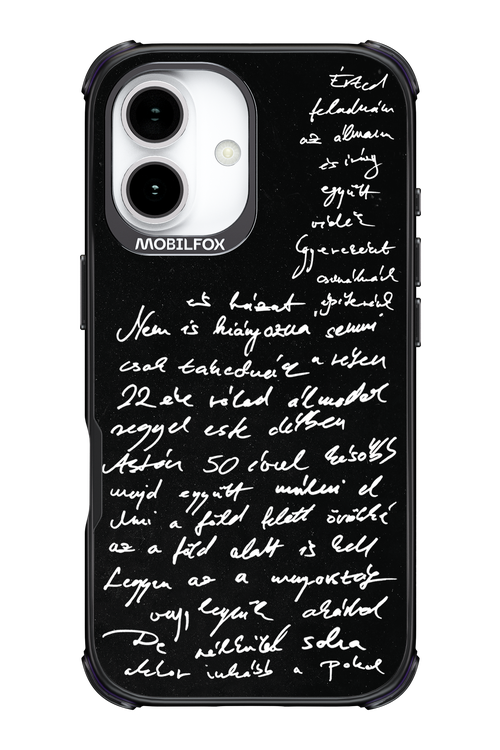 MOBILFOX
Érted
feladnám
az álmaim
és így
együtt
Gyerekeket
csinálnánk
és házat építenénk
Nem is hiányozna semmi
csak
22 éve rólad álmodok
reggel este délben
Aztán 50 évvel később
majd együtt múlni el
Ami a föld felett örökké
az a föld alatt is kell
Legyen az a mennyország
vagy legyünk akárhol
De nélküled soha
akkor inkább a pokol